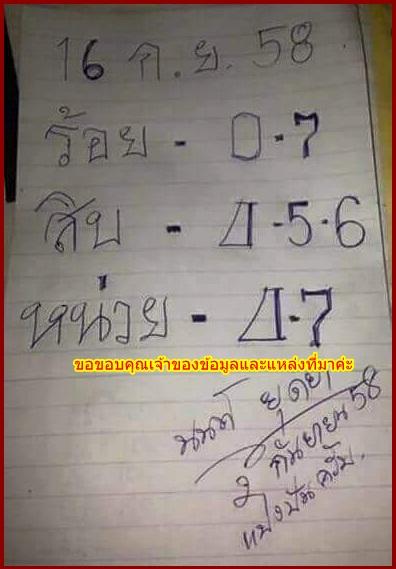 16 ก.ย. 58
ร้อย - 0-7
สิบ - 4-5-6
หน่วย - 4-7
ขอขอบคุณเจ้าของข้อมูลและแหล่งที่มาค่ะ
นนท์ ยุดยา
2 กันยายน 58
แบ่งปันครับ.